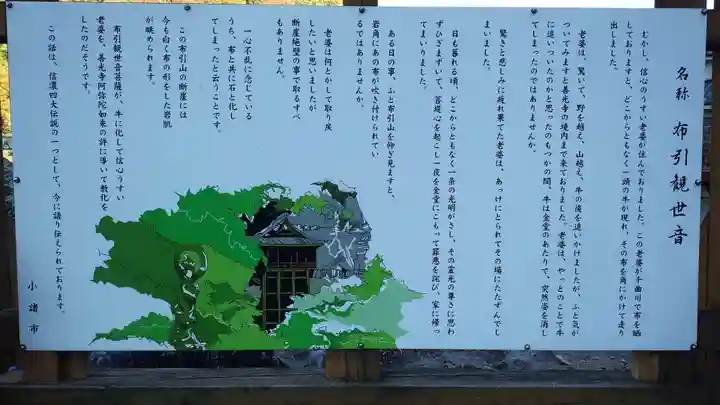 名称 布引観世音
むかし、信心のうすい老婆が住んでおりました。この老婆が千曲川で布を晒
しておりますと、どこからともなく一頭の牛が現れ、その布を角にかけて走り
出しました。
老婆は、驚いて、野を越え、山越え、牛の後を追いかけましたが、ふと気が
ついてみますと善光寺の境内まで来ておりました。老婆は、やっとのことで牛
に追いついたのかと思ったのもつかの間、牛は金堂のあたりで、突然姿を消し
てしまったのではありませんか。
驚きと悲しみに疲れ果てた老婆は、あっけにとられてその場にたたずんでし
まいました。
日も暮れる頃、どこからともなく一条の光明がさし、その霊光の尊さに思わ
ずひざまずいて、菩提心を起こし一夜を金堂にこもって罪悪を詫び、家に帰っ
てまいりました。
ある日の事、ふと布引山を仰ぎ見ますと、
岩角にあの布が吹き付けられてい
るではありませんか。
老婆は何とかして取り戻
したいと思いましたが
断崖絶壁の事で取るすべ
もありません。
一心不乱に念じている
うち、布と共に石と化し
てしまったと云うことです。
この布引山の断崖には
今も白く布の形をした岩肌
が眺められます。
布引観世音菩薩が、牛に化して信心うすい
老婆を、善光寺阿弥陀如来の許に導いて教化を
したのだそうです。
この話は、信濃四大伝説の一つとして、今に語り伝えられております。
小諸市